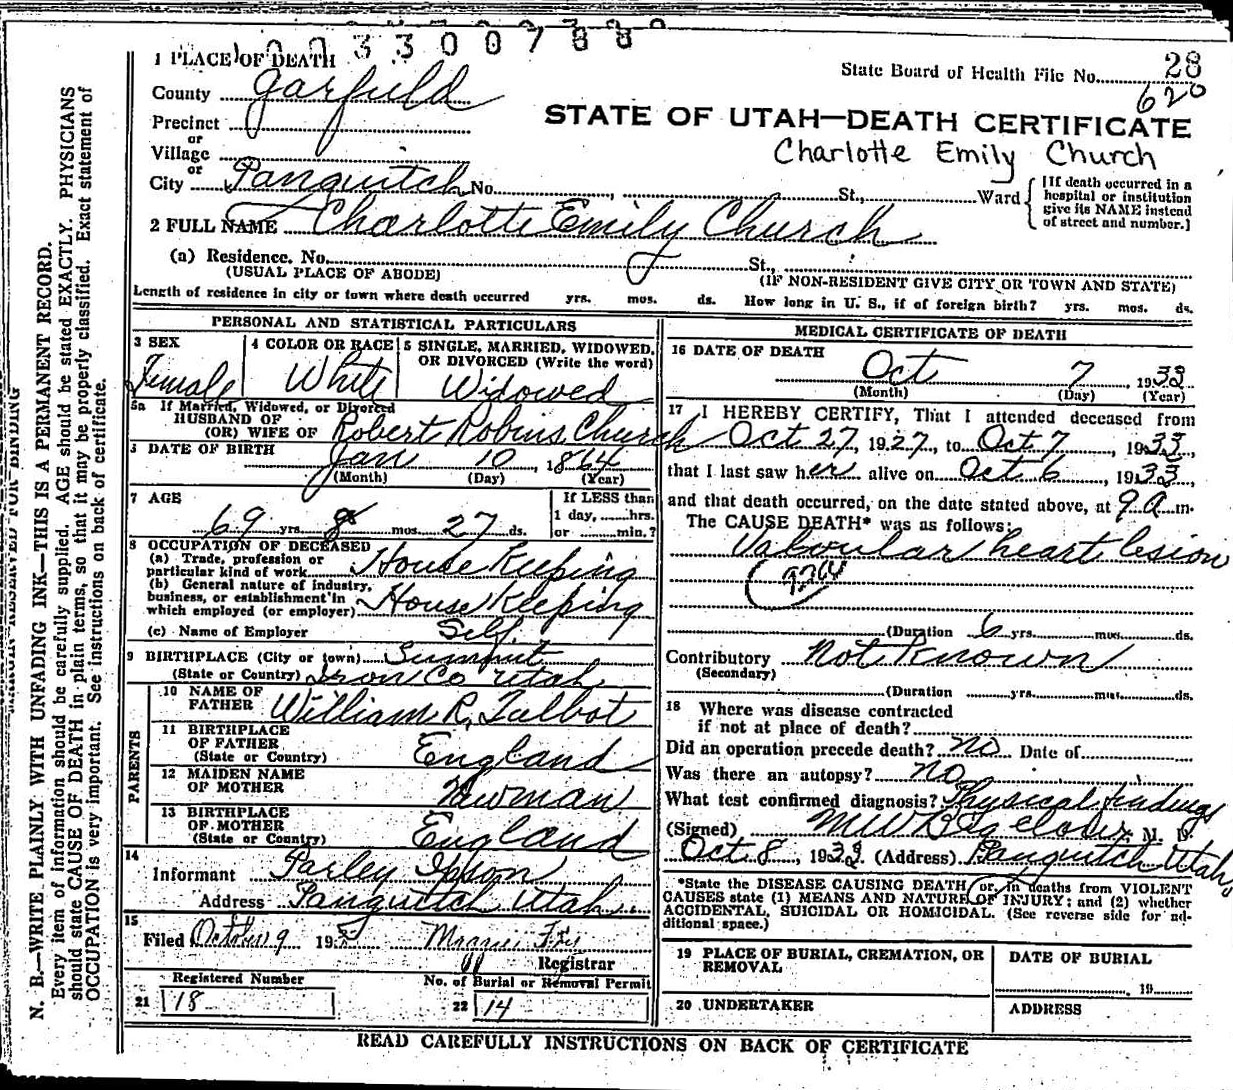 003300788
1 PLACE OF DEATH
State Board of Health File No. 28
620
County Garfield
STATE OF UTAH—DEATH CERTIFICATE
Precinct
Charlotte Emily Church
or
Village
or
City Panguitch No. St., Ward
[If death occurred in a hospital or institution give its NAME instead of street and number.]
2 FULL NAME Charlotte Emily Church
(a) Residence. No. St.,
(USUAL PLACE OF ABODE) (IF NON-RESIDENT GIVE CITY OR TOWN AND STATE)
Length of residence in city or town where death occurred yrs. mos. ds. How long in U. S., if of foreign birth? yrs. mos. ds.
PERSONAL AND STATISTICAL PARTICULARS
3 SEX
Female
4 COLOR OR RACE
White
5 SINGLE, MARRIED, WIDOWED, OR DIVORCED (Write the word)
Widowed
5a If Married, Widowed, or Divorced
HUSBAND OF
(OR) WIFE OF Robert Robins Church
DATE OF BIRTH
Jan 10, 1864
(Month) (Day) (Year)
7 AGE
69 yrs. 8 mos. 27 ds.
If LESS than
1 day, hrs.
or min.?
8 OCCUPATION OF DECEASED
(a) Trade, profession or
particular kind of work House Keeping
(b) General nature of industry,
business, or establishment in
which employed (or employer) House Keeping
(c) Name of Employer Self
9 BIRTHPLACE (City or town) Summit
(State or Country) Iron Co Utah
PARENTS
10 NAME OF
FATHER William R. Talbot
11 BIRTHPLACE
OF FATHER
(State or Country) England
12 MAIDEN NAME
OF MOTHER Newman
13 BIRTHPLACE
OF MOTHER
(State or Country) England
14
Informant Parley Ipson
Address Panguitch Utah
15
Filed October 9 193
Registrar
Registered Number
21 18
No. of Burial or Removal Permit
22 14
MEDICAL CERTIFICATE OF DEATH
16 DATE OF DEATH
Oct 7, 1933
(Month) (Day) (Year)
17 I HEREBY CERTIFY, That I attended deceased from
Oct 27, 1927, to Oct 7, 1933,
that I last saw her alive on Oct 6, 1933,
and that death occurred, on the date stated above, at 9 a m.
The CAUSE DEATH* was as follows:
Valvular heart lesion
(Duration 6 yrs. mos. ds.
Contributory Not Known
(Secondary)
(Duration yrs. mos. ds.
18 Where was disease contracted
if not at place of death?
Did an operation precede death? no Date of
Was there an autopsy? no
What test confirmed diagnosis? Physical findings
(Signed) M W Bigelow M. D.
Oct 8, 1933 (Address) Panguitch Utah
*State the DISEASE CAUSING DEATH or, in deaths from VIOLENT
CAUSES state (1) MEANS AND NATURE OF INJURY; and (2) whether
ACCIDENTAL, SUICIDAL OR HOMICIDAL. (See reverse side for ad-
ditional space.)
19 PLACE OF BURIAL, CREMATION, OR
REMOVAL
DATE OF BURIAL
, 19
20 UNDERTAKER
ADDRESS
READ CAREFULLY INSTRUCTIONS ON BACK OF CERTIFICATE
MARGIN RESERVED FOR BINDING
N. B.—WRITE PLAINLY WITH UNFADING INK—THIS IS A PERMANENT RECORD.
Every item of information should be carefully supplied. AGE should be stated EXACTLY. PHYSICIANS
should state CAUSE OF DEATH in plain terms, so that it may be properly classified. Exact statement of
OCCUPATION is very important. See instructions on back of certificate.